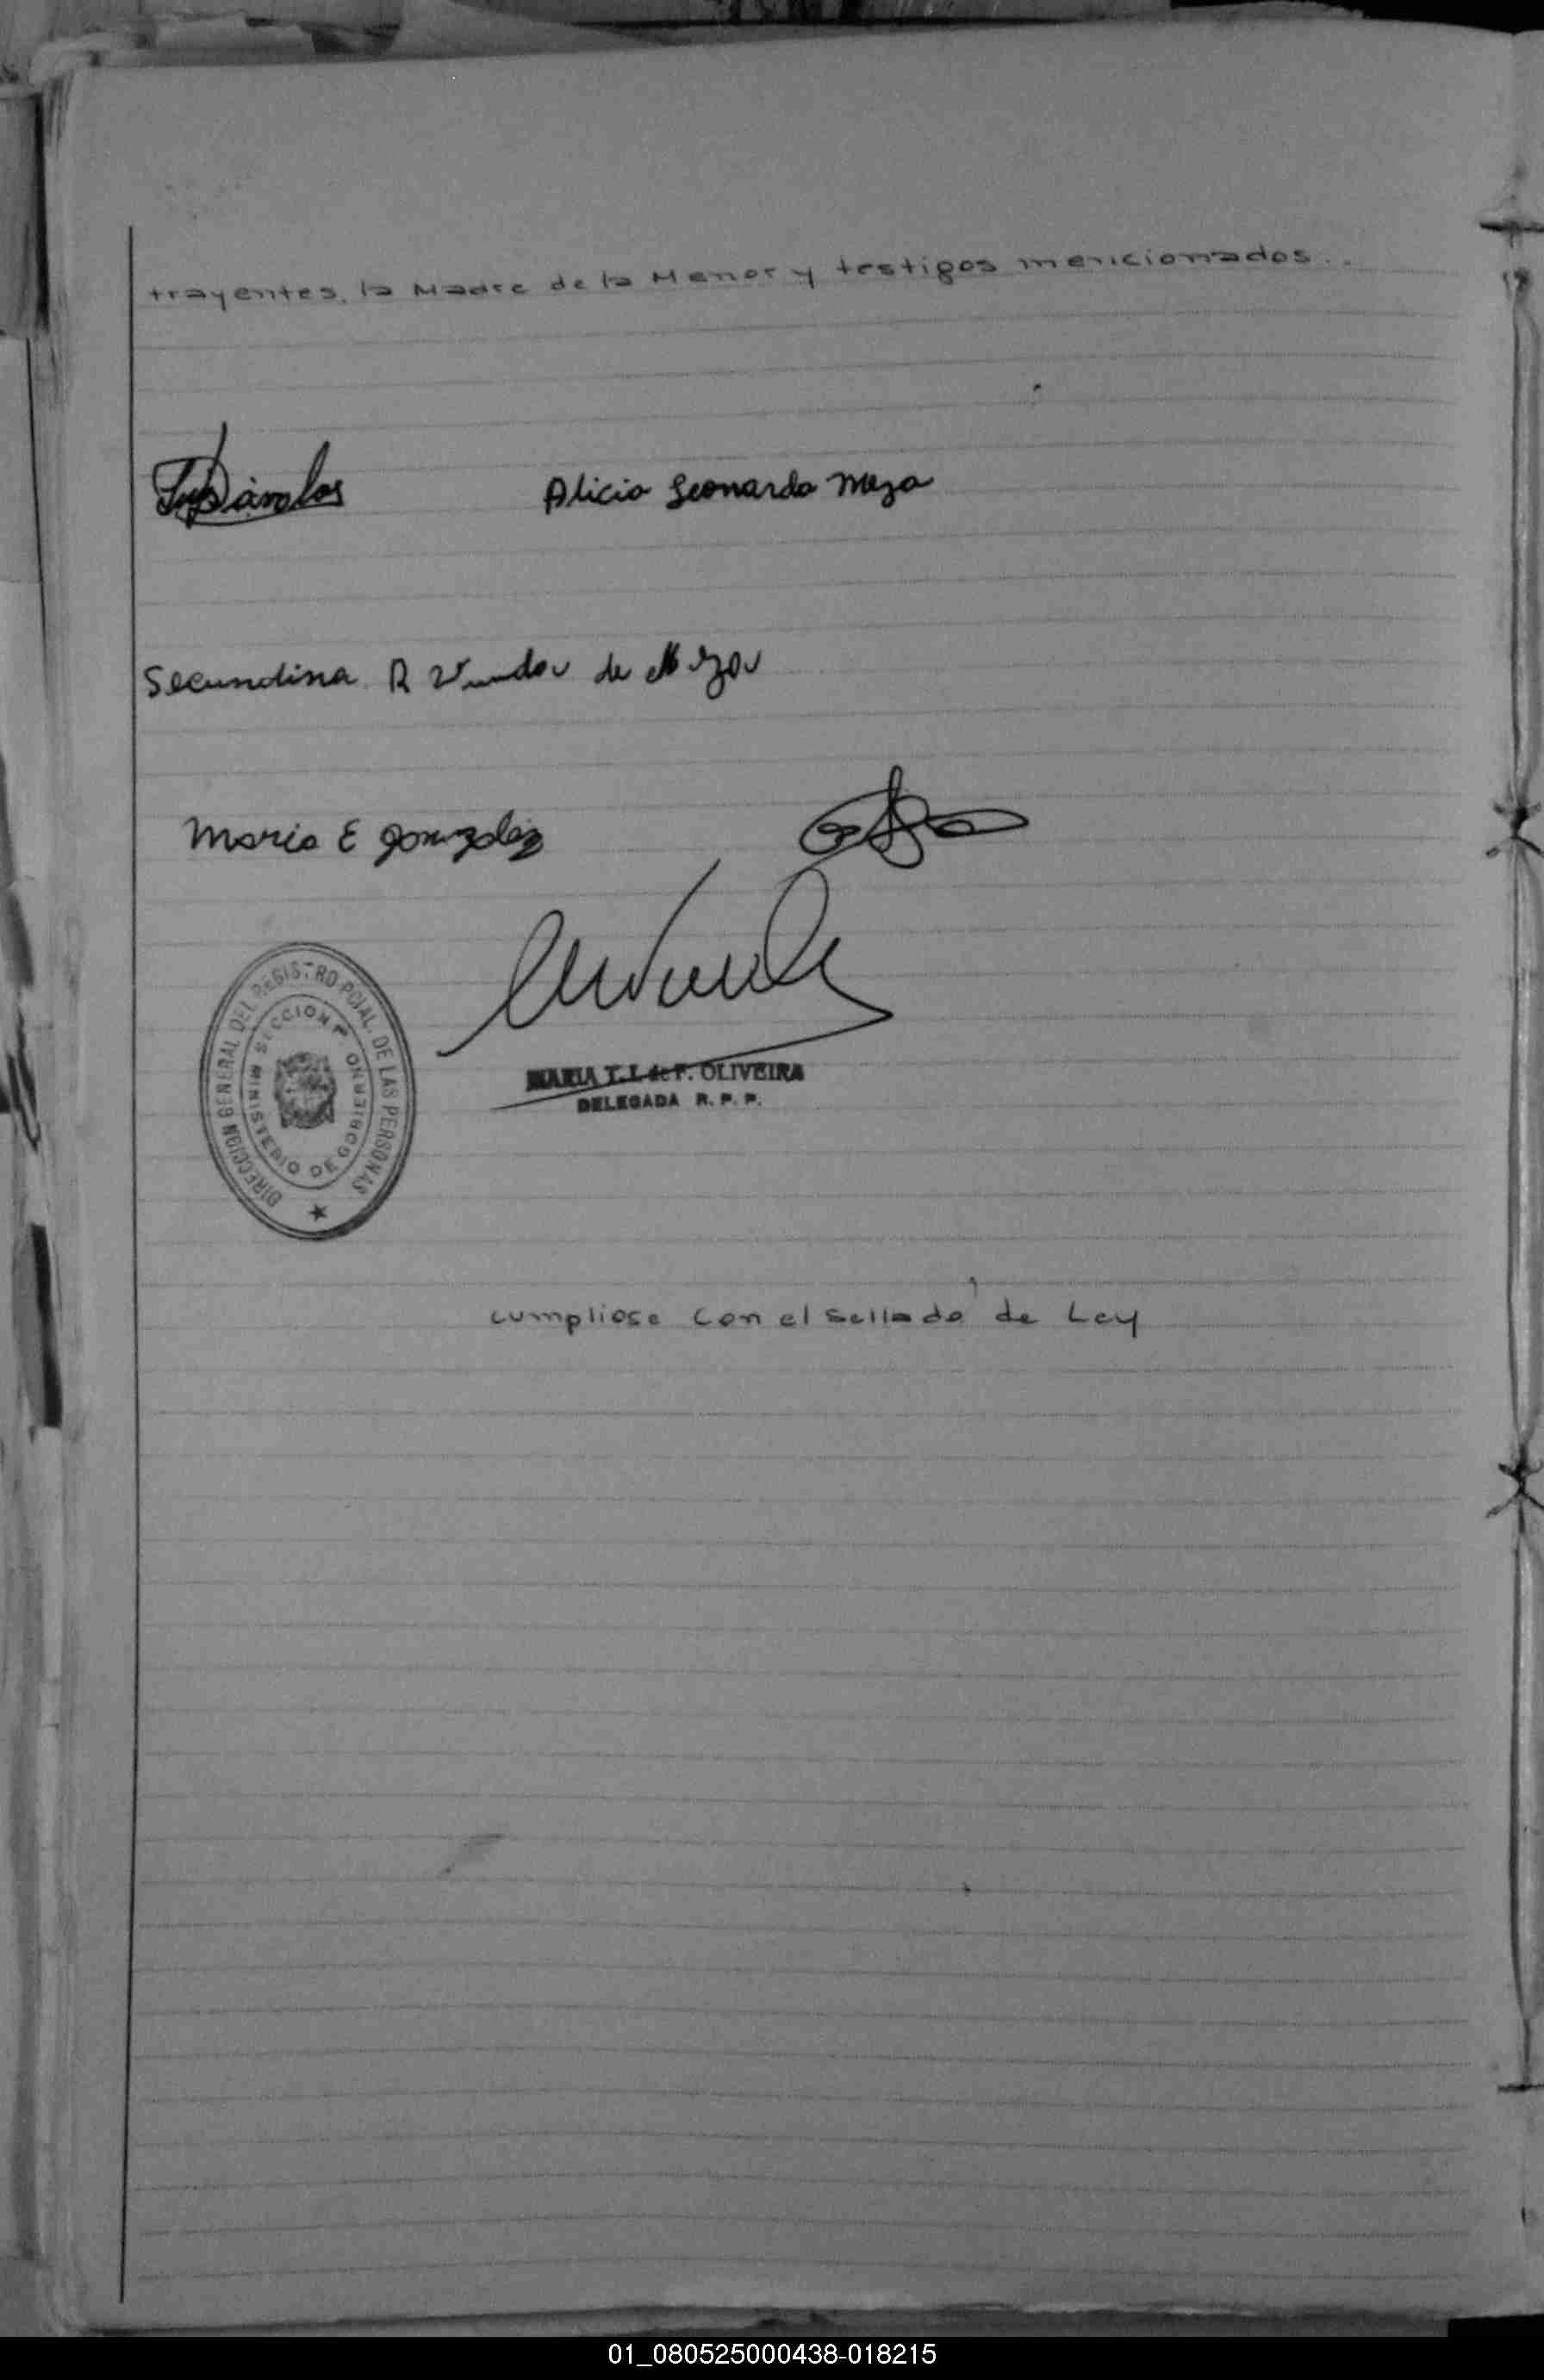 trayentes, la Madre de la Menor y testigos mencionados..
Dávalos
Alicia Leonarda Meza
Secundina R de Meza
Maria E Gonzalez
DIRECCION GENERAL DEL REGISTRO PCIAL. DE LAS PERSONAS
SECCION 1ª
MINISTERIO DE GOBIERNO
MARIA T. I. de F. OLIVEIRA
DELEGADA R. P. P.
cumpliose con el sellado de Ley
01_080525000438-018215